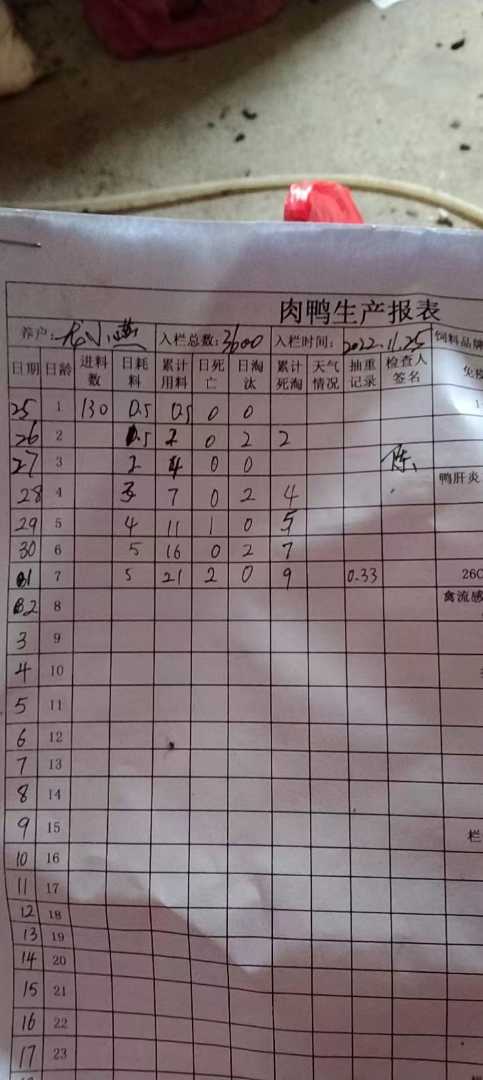 肉鸭生产报表
养户: 入栏总数:3600 入栏时间: 2022.11.25 饲料品牌
日期 日龄 进料数 日耗料 累计用料 日死亡 日淘汰 累计死淘 天气情况 抽重记录 检查人签名 免疫
25 1 130 0.5 0.5 0 0 1
26 2 1.5 2 0 2 2
27 3 2 4 0 0 陈
28 4 3 7 0 2 4 鸭肝炎
29 5 4 11 1 0 5
30 6 5 16 0 2 7
1 7 5 21 2 0 9 0.33 26
2 8 禽流感
3 9
4 10
5 11
6 12
7 13
8 14
9 15 栏
10 16
11 17
12 18
13 19
14 20
15 21
16 22
17 23